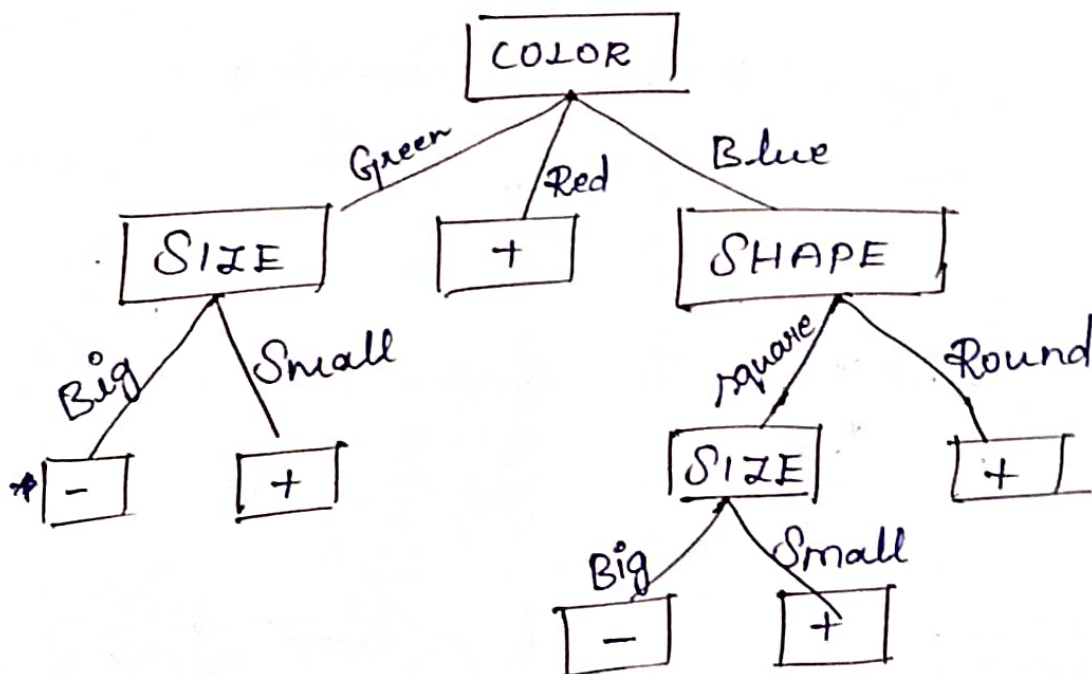 COLOR
Green Red Blue
SIZE + SHAPE
Big Small square Round
- + SIZE +
Big Small
- +